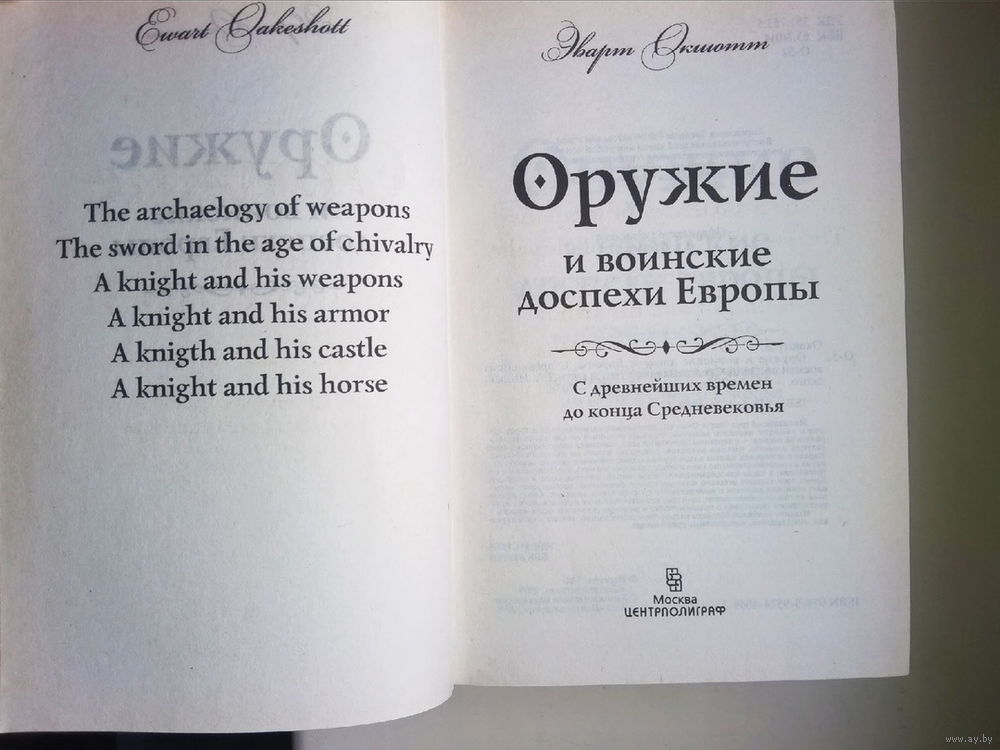 Ewart Oakeshott
The archaelogy of weapons
The sword in the age of chivalry
A knight and his weapons
A knight and his armor
A knigth and his castle
A knight and his horse
Эварт Окшотт
Оружие
и воинские
доспехи Европы
С древнейших времен
до конца Средневековья
Москва
ЦЕНТРПОЛИГРАФ
www.ay.by